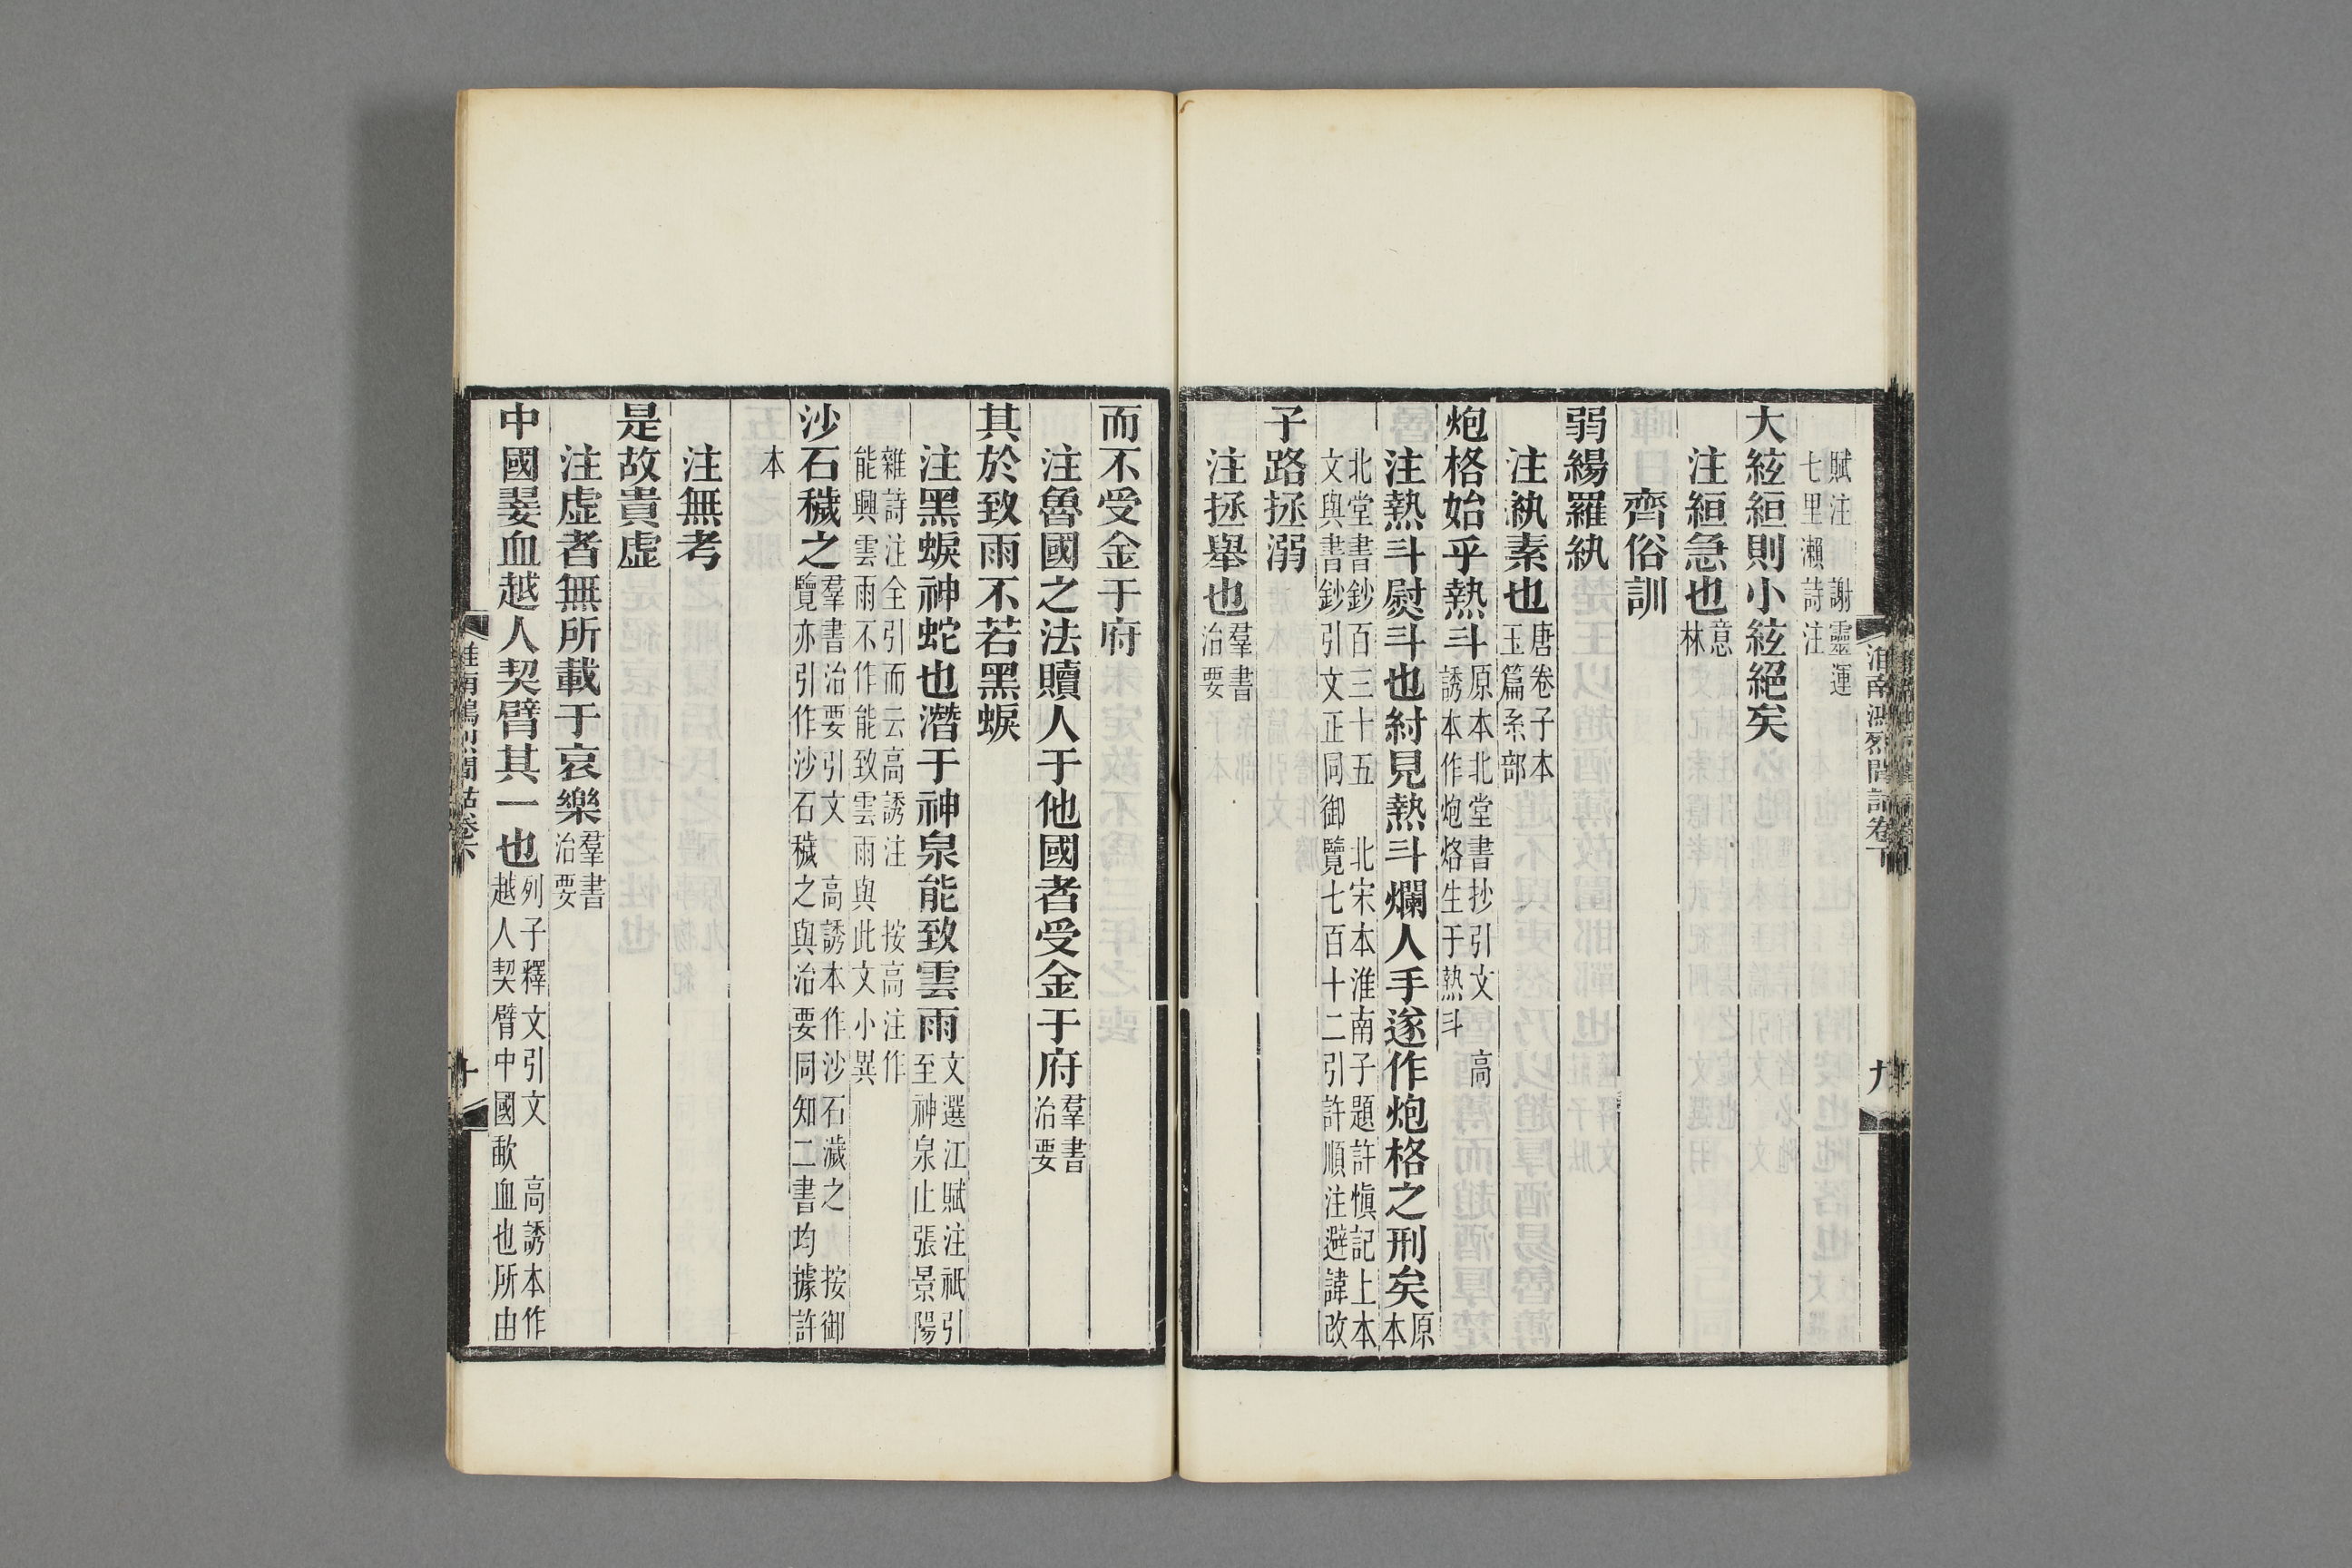 賦注　謝靈運七里瀨詩注
大絃絚則小絃絕矣
注絚急也意林
齊俗訓
弱緆羅紈
注紈素也唐卷子本玉篇系部
炮格始乎熱斗原本北堂書抄引文　高誘本作炮烙生于熱斗
注熱斗熨斗也紂見熱斗爛人手遂作炮格之刑矣原本
北堂書鈔百三十五　北宋本淮南子題許愼記上本文與書鈔引文正同御覽七百十二引許順注避諱改
子路拯溺
注拯舉也羣書治要
淮南鴻烈閒詁卷下
九
而不受金于府
注魯國之法贖人于他國者受金于府羣書治要
其於致雨不若黑蜧
注黑蜧神蛇也潛于神泉能致雲雨文選江賦注祇引至神泉止張景陽
雜詩注全引而云高誘注　按高注作能興雲雨不作能致雲雨與此文小異
沙石穢之羣書治要引文　高誘本作沙石濊之　按御覽亦引作沙石穢之與治要同知二書均據許
本
注無考
是故貴虛
注虛者無所載于哀樂羣書治要
中國歃血越人契臂其一也列子釋文引文　高誘本作越人契臂中國歃血也所由
淮南鴻烈閒詁卷下
十